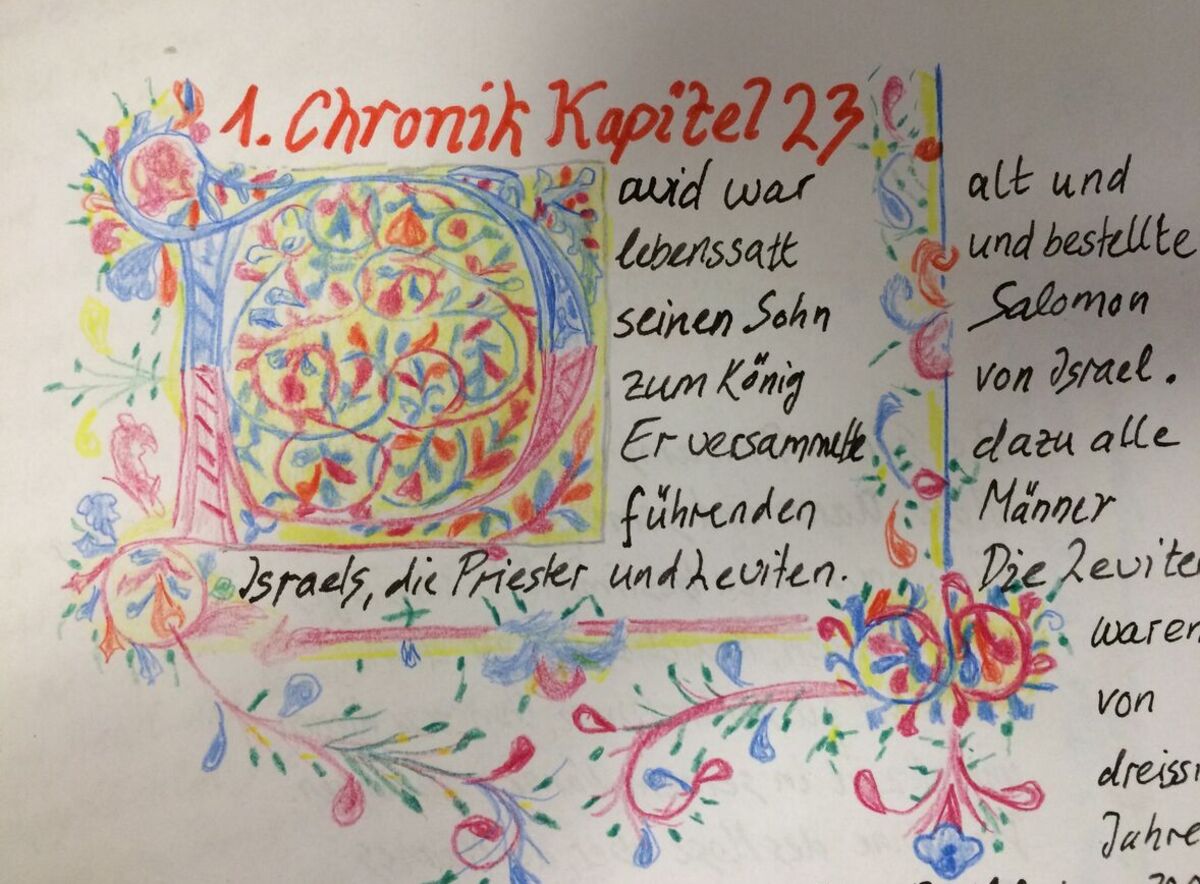 1. Chronik Kapitel 23
David war alt und
lebenssatt und bestellte
seinen Sohn Salomon
zum König von Israel.
Er versammelte dazu alle
führenden Männer
Israels, die Priester und Leviten. Die Levite
waren
von
dreissi
Jahre